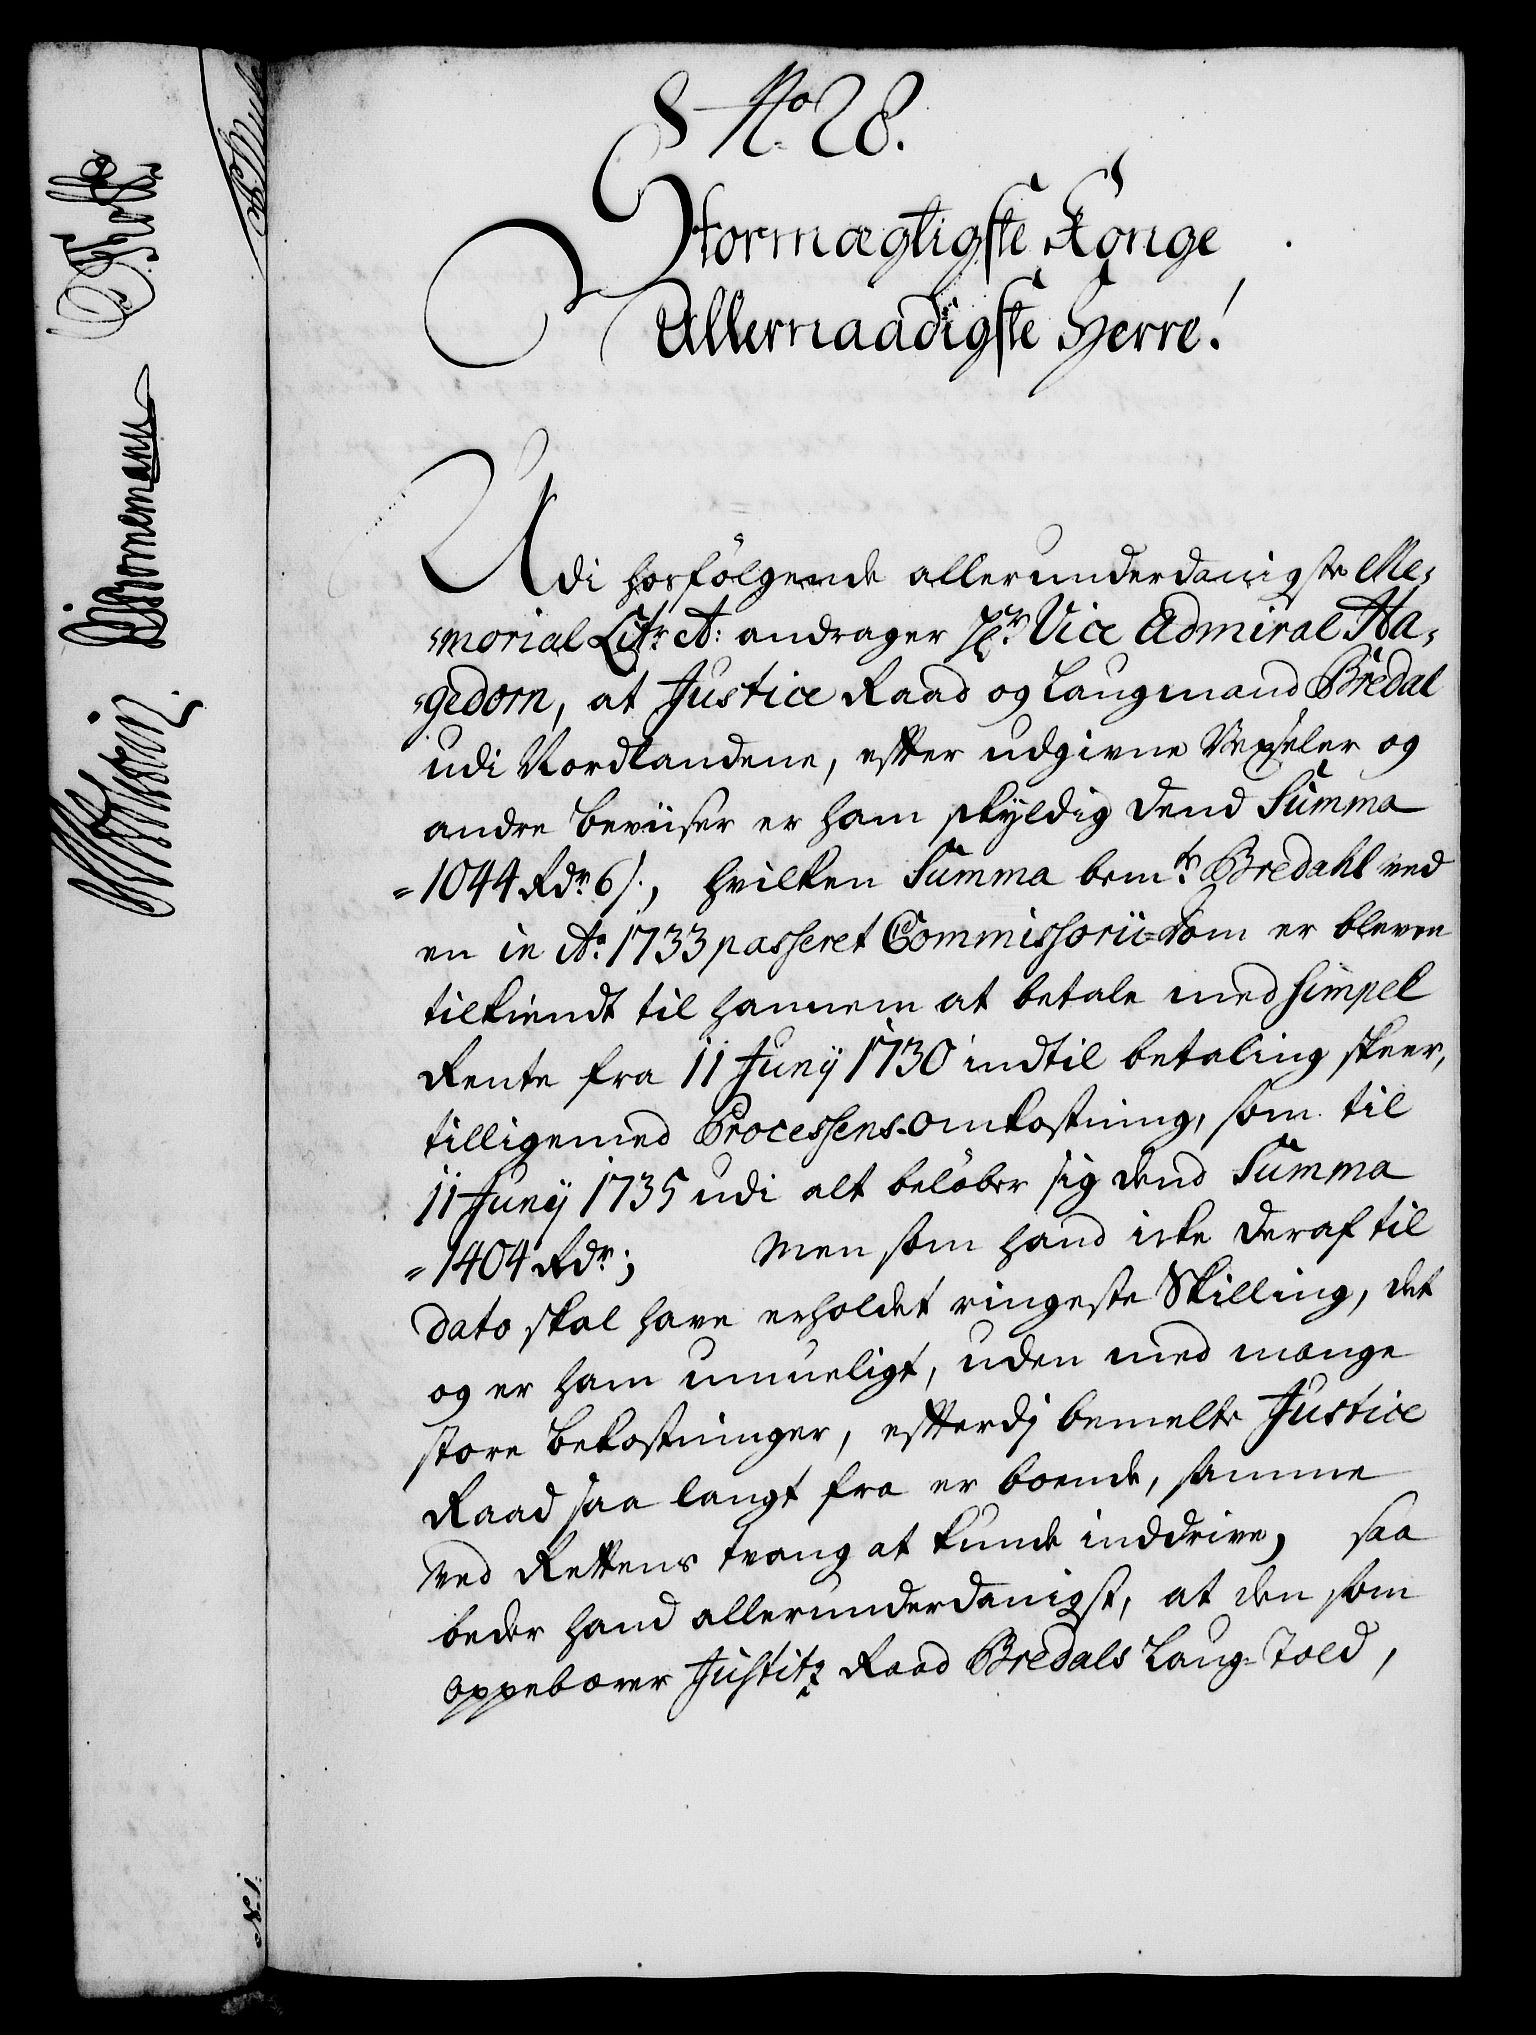 No. 28.
Stormægtigste Konge
Allernaadigste Herre!
Udi hosfølgende allerunderdanigste Me,
,morial Litr: A: andrager Hr. Vice Admiral Ha,
,gedorn, at Justice Raad og Laugmand Bredal
udi Nordlandene, efter udgivne Vexseler og
andre beviiser er ham skyldig dend Summa
=1044 Rdr. 6 s., hvilken Summa bemte. Bredahl ved
en in Ao. 1733 passeret Commissorii-dom er bleven
tilkiendt til hannem at betale med simpel
Rente fra 11 Junij 1730 indtil betaling skeer,
tilligemed Processens-omkostning, som til
11 Junij 1735 udi alt beløber sig dend Summa
=1404 Rdr.; Men som hand icke deraf til
dato skal have erholdet ringeste Skilling, det
og er ham umueligt, uden med mange
store bekostninger, efterdj bemelte Justice
Raad saa langt fra er boende, samme
ved Rettens tvang at kunde inddrive, saa
beder hand allerunderdanigst, at den som
oppebærer Justitz Raad Bredals Laug-Told,
Bornemann
N. 1.